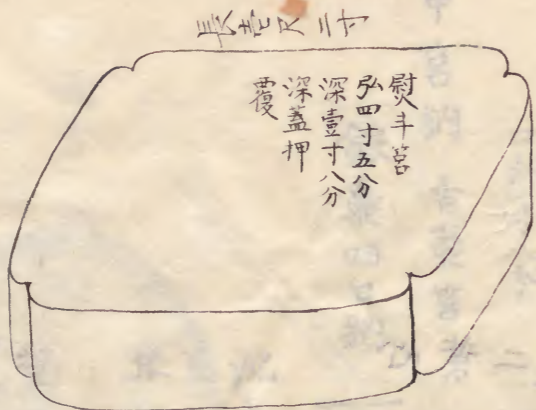 長壱尺二寸
熨斗筥
弘四寸五分
深壹寸八分
深蓋押
覆